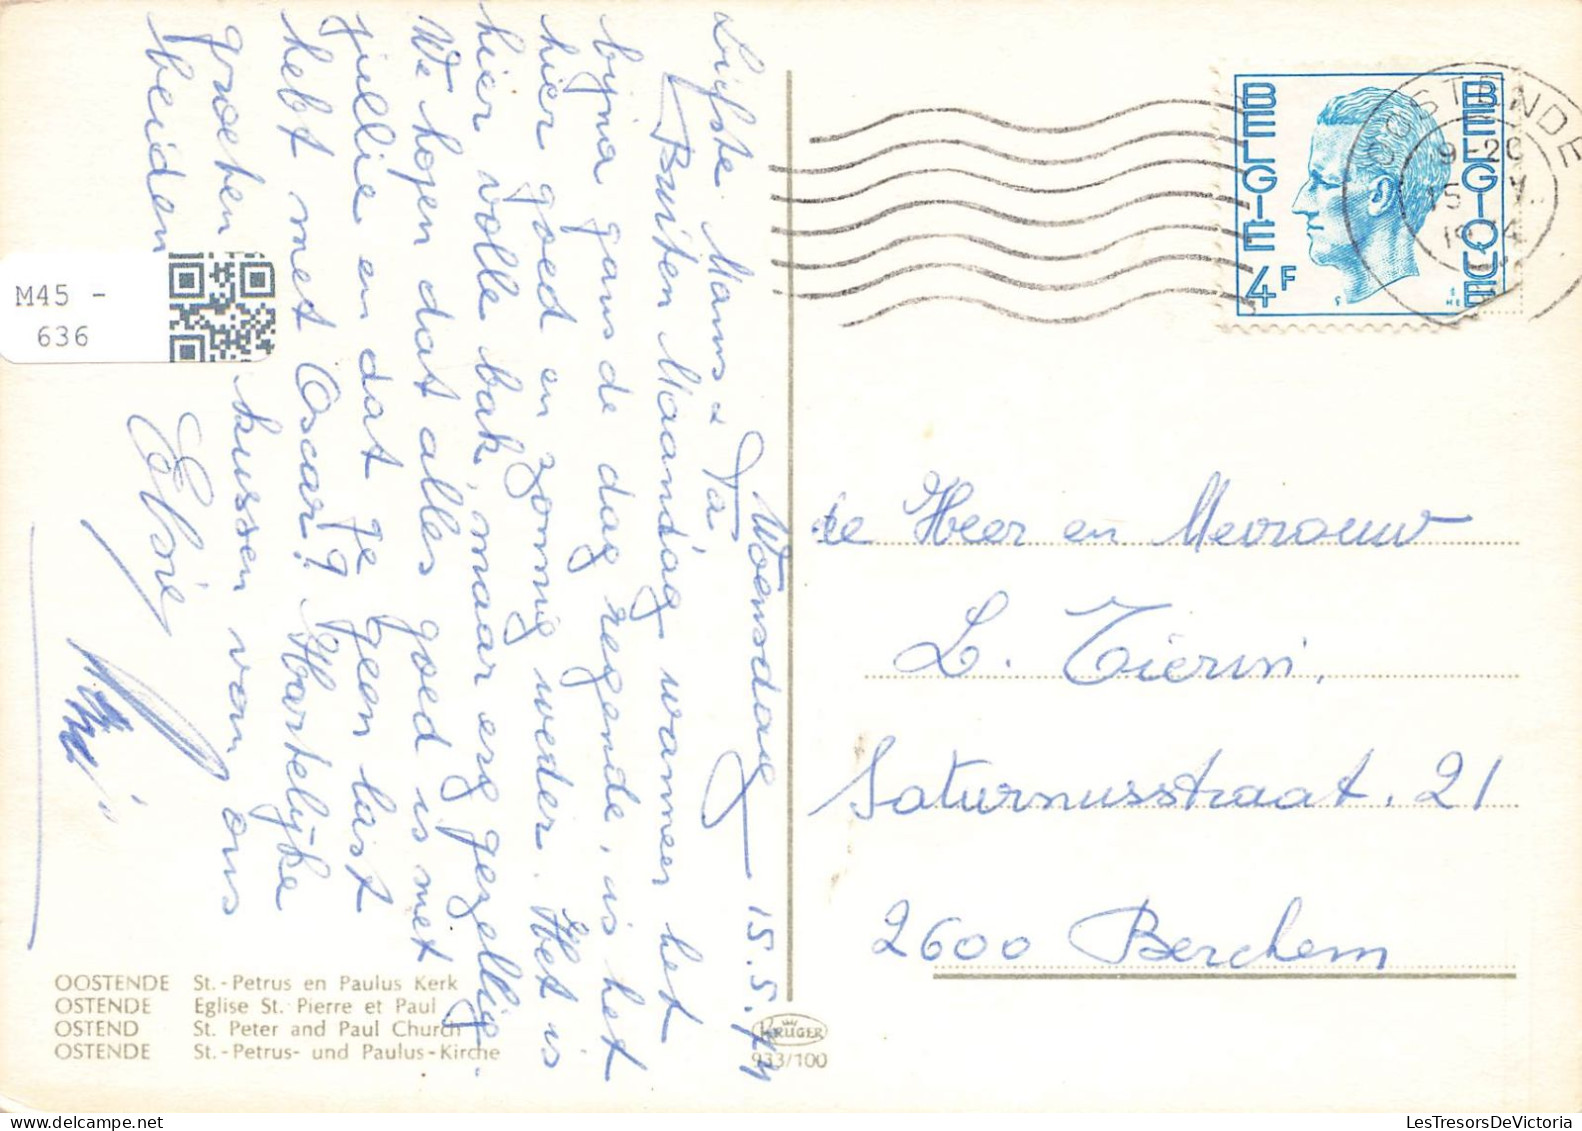 Woensdag 15.5.74
Liefste Mams & Pa
Buiten Maandag wanneer het
bijna gans de dag regende, is het
hier goed en zonnig weder. Het is
hier volle bak, maar erg gezellig.
We hopen dat alles goed is met
jullie en dat je geen last
hebt met Oscar!? Hartelijke
groeten kussen van ons
beiden
Elsie
M45 -
636
OOSTENDE St.-Petrus en Paulus Kerk
OSTENDE Eglise St. Pierre et Paul
OSTEND St. Peter and Paul Church
OSTENDE St.-Petrus- und Paulus-Kirche
KRÜGER
933/100
BELGIË
BELGIQUE
4F
OOSTENDE
9-20
15 V
1974
de Heer en Mevrouw
L. Tierin,
Saturnusstraat. 21
2600 Berchem
LesTresorsDeVictoria.com